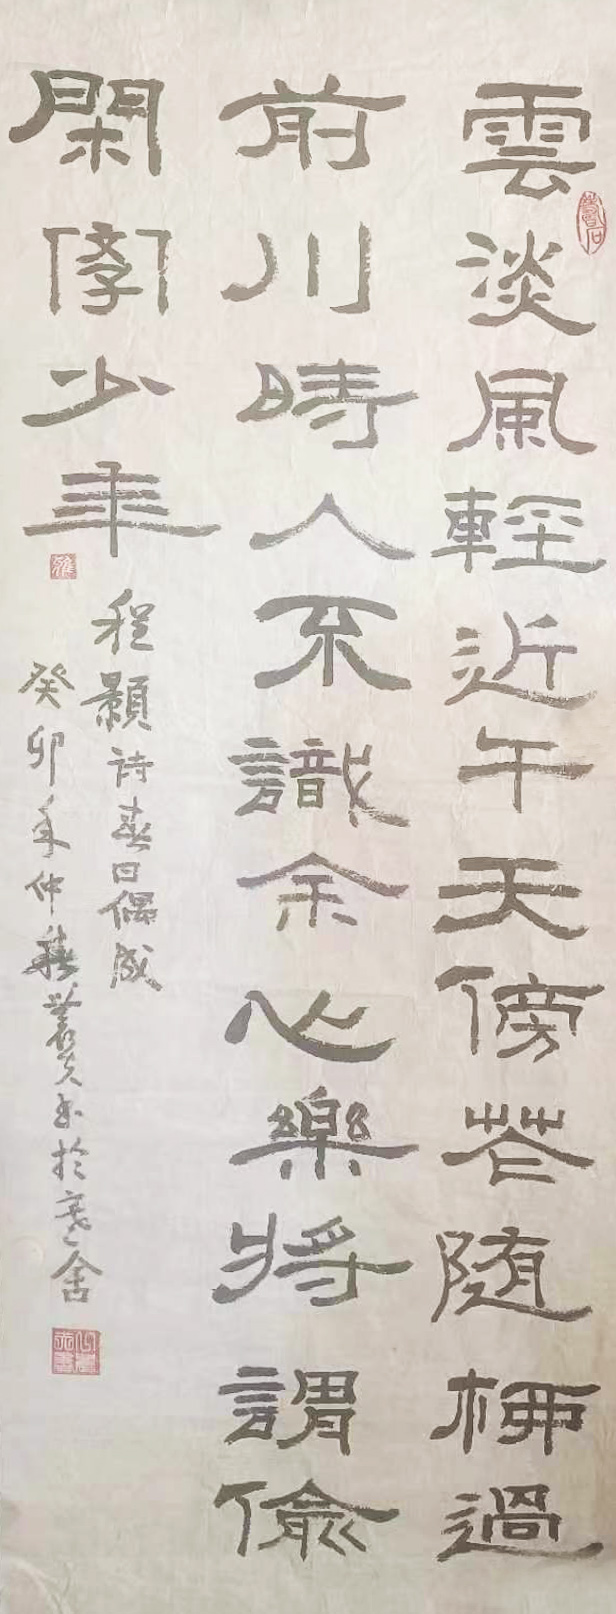 雲淡風輕近午天傍花随柳過
前川時人不識余心樂將謂偷
閑學少年
程顥詩春日偶成
癸卯年仲书於寒舍